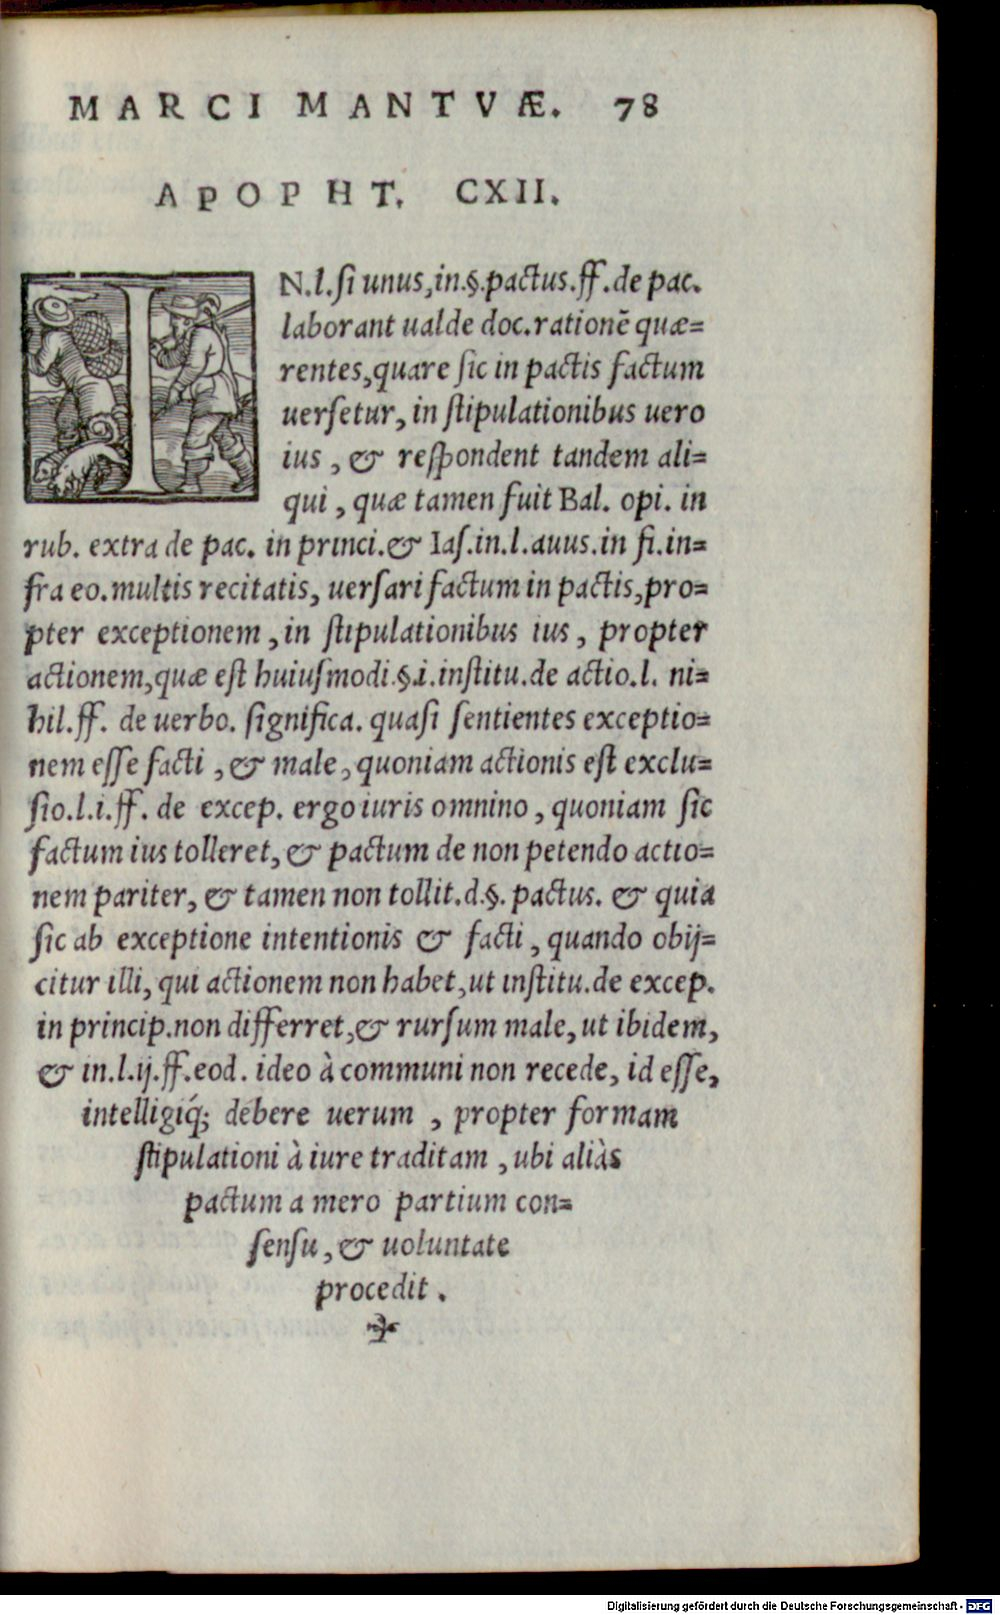 MARCI MANTVÆ. 78
APOPHT. CXII.
IN.l.ſi unus,in.§.pactus.ff.de pac.
laborant ualde doc.rationẽ quæ=
rentes,quare ſic in pactis factum
uerſetur, in ſtipulationibus uero
ius , & reſpondent tandem ali=
qui , quæ tamen fuit Bal. opi. in
rub. extra de pac. in princi.& Iaſ.in.l.auus.in fi.in=
fra eo.multis recitatis, uerſari factum in pactis,pro=
pter exceptionem , in ſtipulationibus ius , propter
actionem,quæ eſt huiuſmodi.§.i.inſtitu.de actio.l. ni=
hil.ff. de uerbo. ſignifica. quaſi ſentientes exceptio=
nem eſſe facti , & male, quoniam actionis eſt exclu=
ſio.l.i.ff. de excep. ergo iuris omnino , quoniam ſic
factum ius tolleret, & pactum de non petendo actio=
nem pariter, & tamen non tollit.d.§. pactus. & quia
ſic ab exceptione intentionis & facti , quando obij=
citur illi, qui actionem non habet,ut inſtitu.de excep.
in princip.non differret,& rurſum male, ut ibidem,
& in.l.ij.ff.eod. ideo à communi non recede, id eſſe,
intelligiq́; debere uerum , propter formam
ſtipulationi à iure traditam , ubi aliàs
pactum a mero partium con=
ſenſu, & uoluntate
procedit .
Digitalisierung gefördert durch die Deutsche Forschungsgemeinschaft - DFG